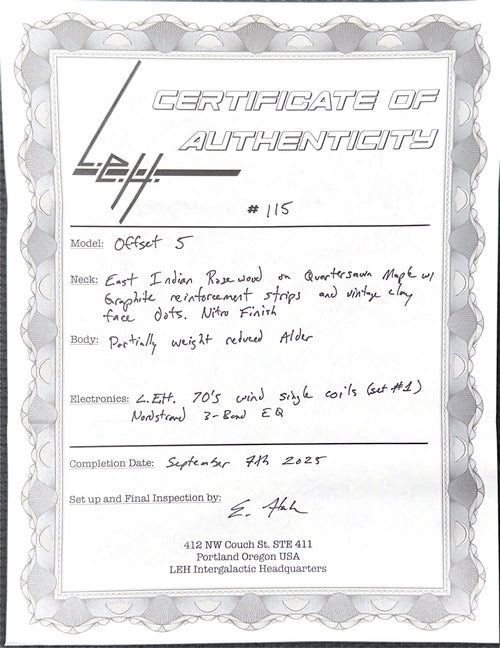 L.E.H.
CERTIFICATE OF
AUTHENTICITY
# 115
Model: Offset 5
Neck: East Indian Rosewood on Quartersawn Maple w/
Graphite reinforcement strips and vintage clay
face dots. Nitro Finish
Body: Partially weight reduced Alder
Electronics: L.EH. 70's wind single coils (set #1)
Nordstrand 3-Band EQ
Completion Date: September 7th 2025
Set up and Final Inspection by:
E.
412 NW Couch St. STE 411
Portland Oregon USA
LEH Intergalactic Headquarters